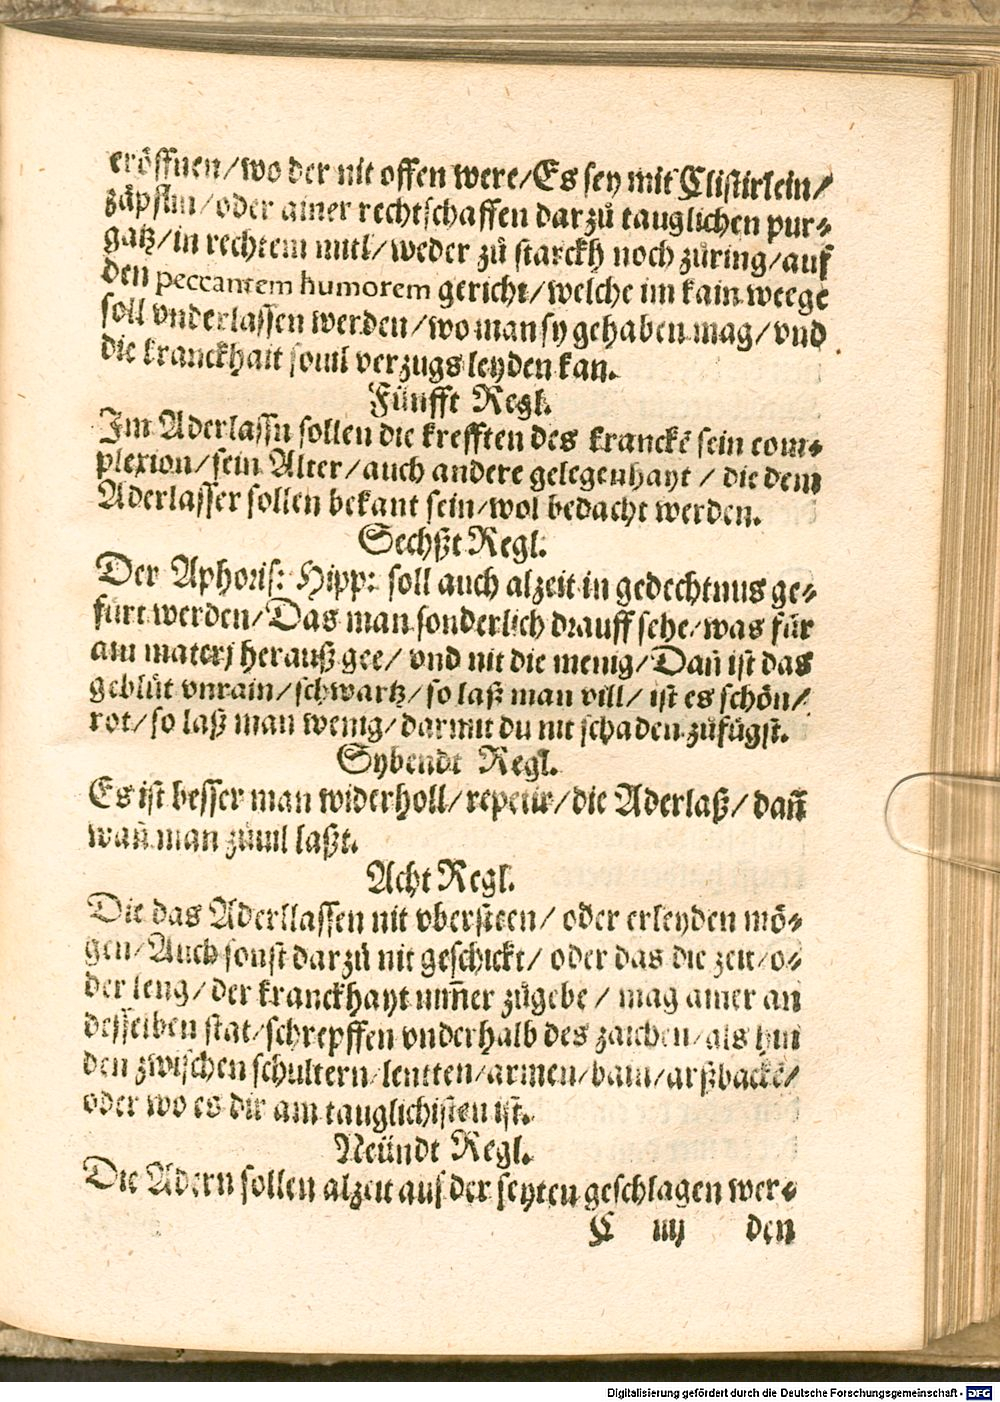 eröffnen/wo der nit offen were/Es sey mit Clistirlein/
zäpflin/oder ainer rechtschaffen darzů tauglichen pur⸗
gatz/in rechtem mitl/weder zů starckh noch zůring/auf
den peccantem humorem gericht/welche im kain weege
soll vnderlassen werden/wo man sy gehaben mag/vnd
die kranckhait souil verzugs leyden kan.
Fünfft Regl.
Im Aderlassn sollen die krefften des kranckē sein com⸗
plexion/sein Alter/auch andere gelegenhayt / die dem
Aderlasser sollen bekant sein/wol bedacht werden.
Sechßt Regl.
Der Aphoris: Hipp: soll auch alzeit in gedechtnus ge⸗
fürt werden/Das man sonderlich drauff sehe/was für
am materj herauß gee/ vnd nit die menig/Dañ ist das
geblüt vnrain/schwartz/so laß man vill/ ist es schön/
rot/so laß man wenig/darmit du nit schaden zůfügst.
Sybendt Regl.
Es ist besser man widerholl/repetir/die Aderlaß/dañ
wañ man zůuil laßt.
Acht Regl.
Die das Aderllassen nit vbersteen/ oder erleyden mö⸗
gen/Auch sonst darzů nit geschickt/ oder das die zeit/o⸗
der leng/der kranckhayt nim̄er zůgebe / mag ainer an
desselben stat/schrepffen vnderhalb des zaichen/als hin
den zwischen schultern/lentten/armen/bain/arßbackē/
oder wo es dir am tauglichisten ist.
Neündt Regl.
Die Adern sollen alzeit auf der seyten geschlagen wer⸗
C iiij den
Digitalisierung gefördert durch die Deutsche Forschungsgemeinschaft - DFG